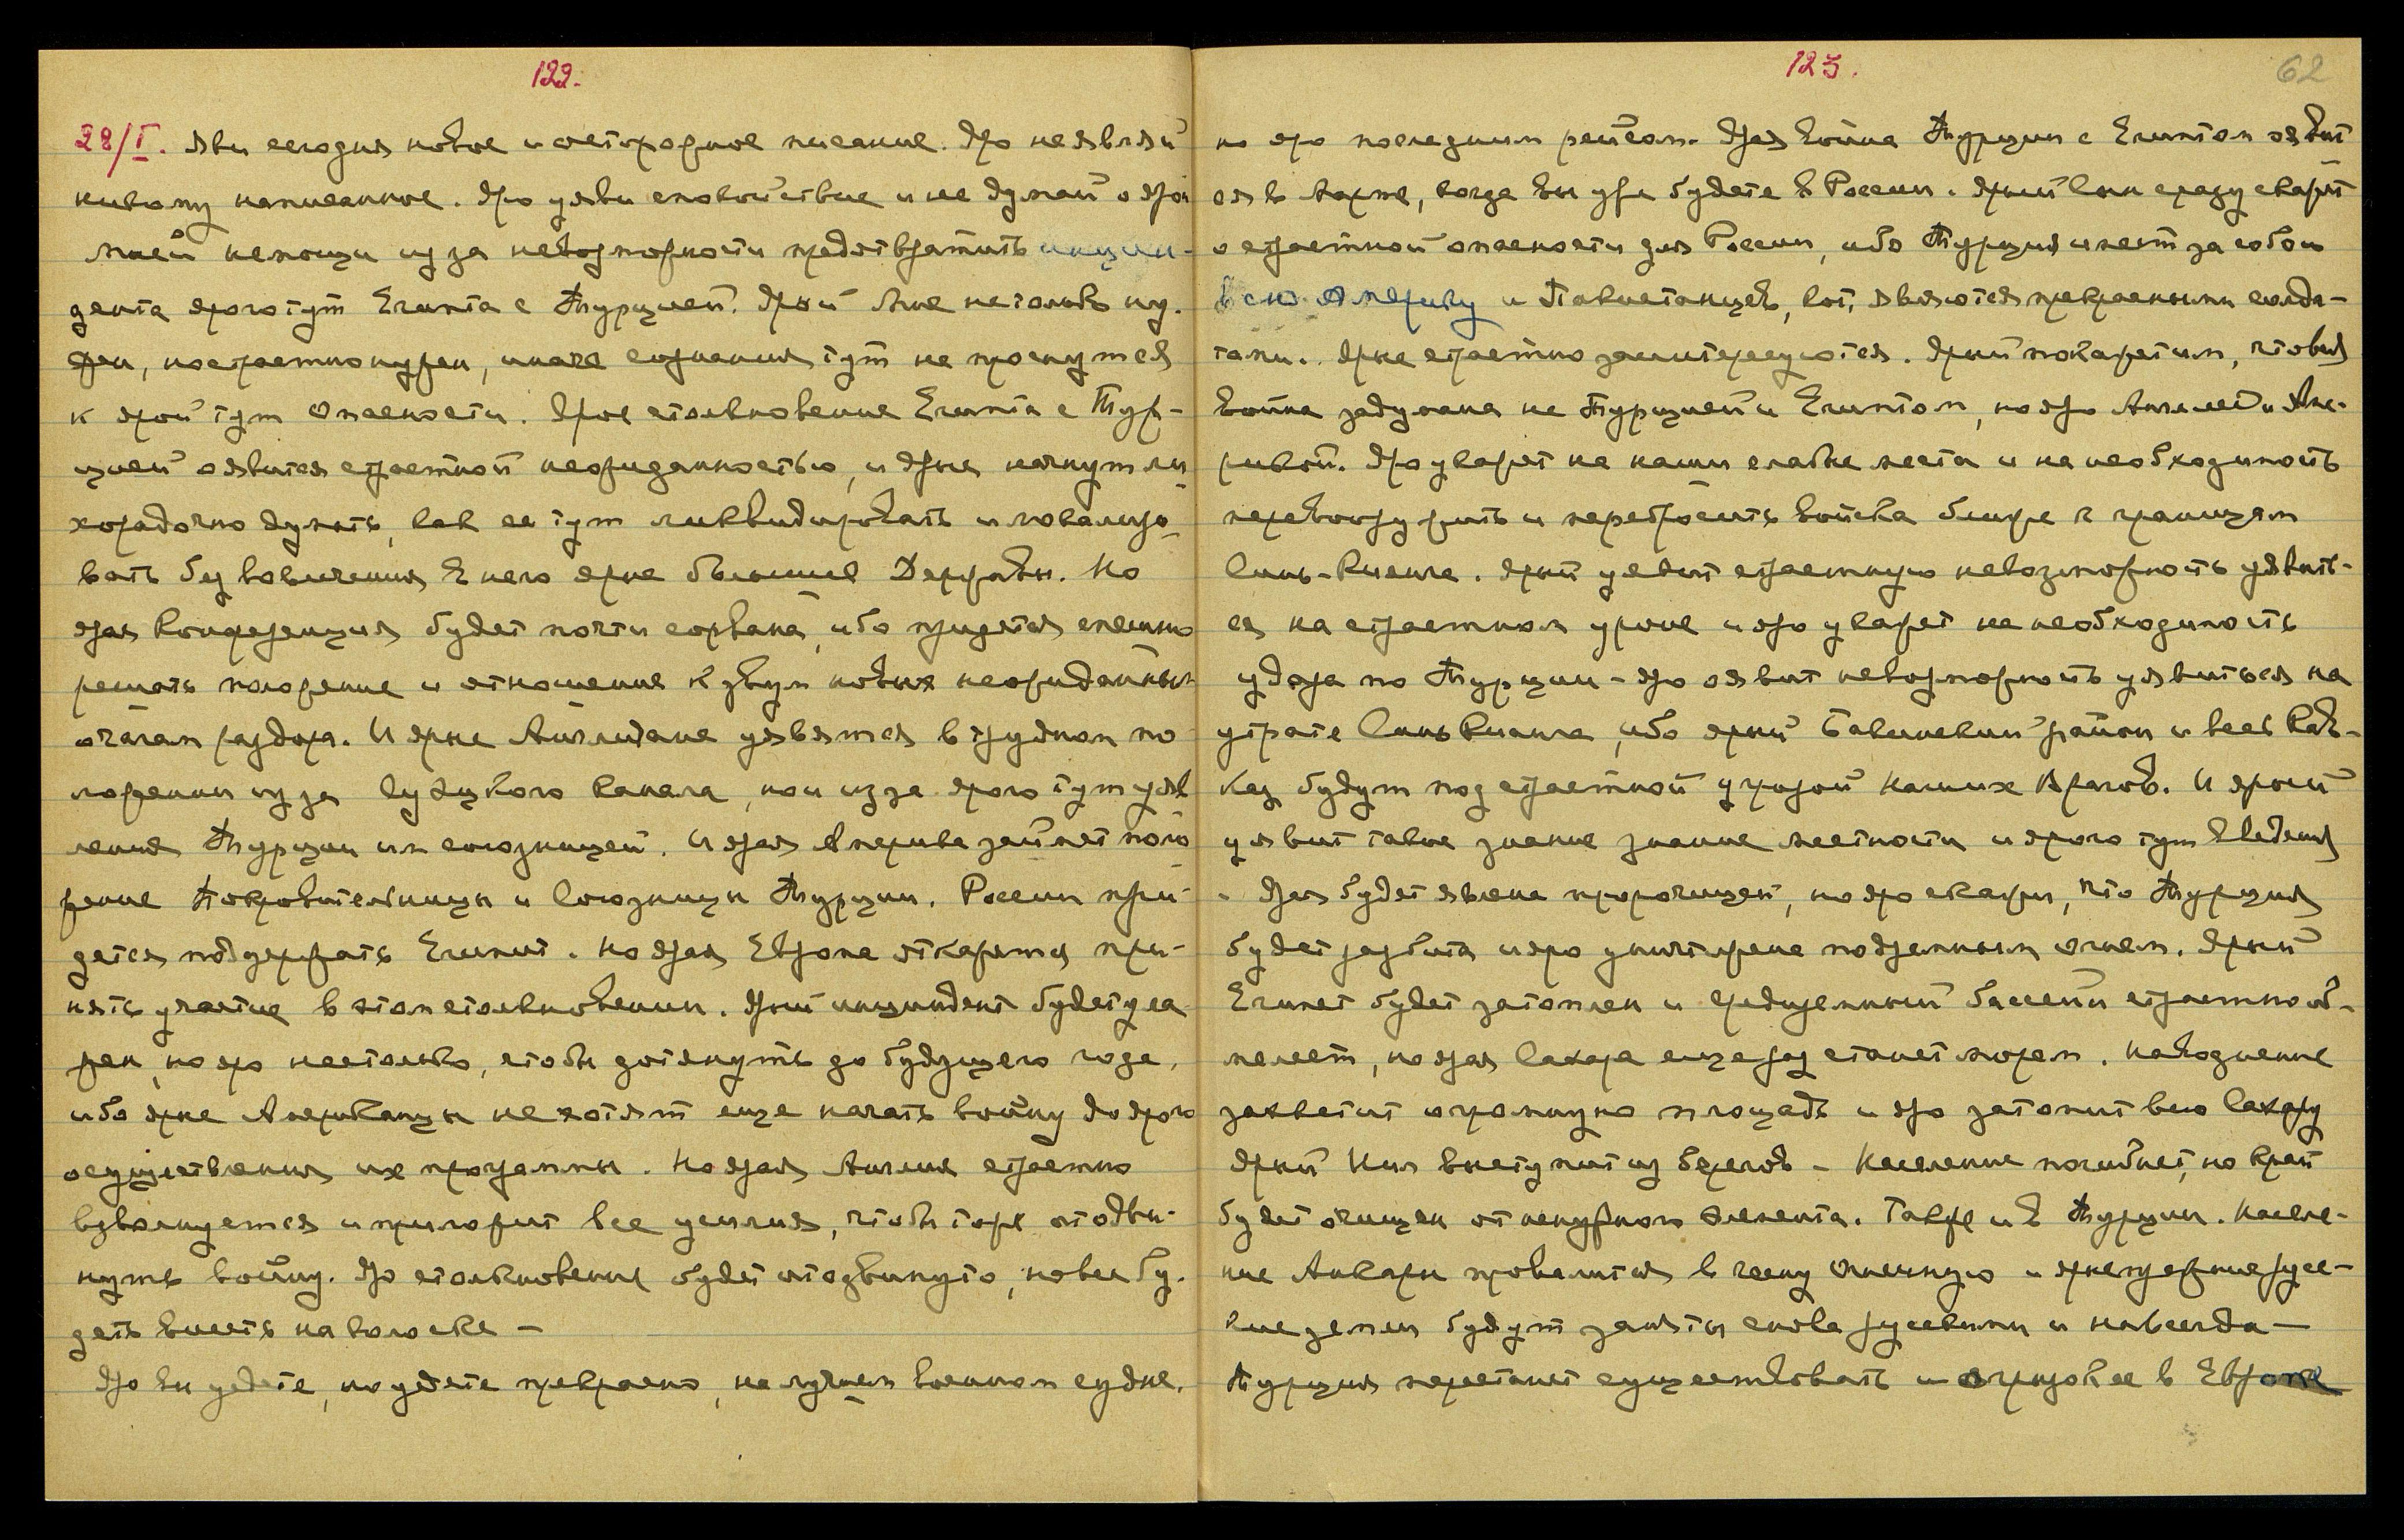 122.
28/I. Яви сегодня новое и осторожное писание. Яро не являй
никому написанное. Яро уяви спокойствие и не думай о ярой
Моей немощи из за невозможности предотвратить инцин-
дента ярого тут Египта с Турцией. Ярый Мне не только ну-
жен, но страстно нужен, иначе сознания тут не проснутся
к ярой тут опасности. Ярое столкновение Египта с Тур-
цией оявится страстной неожиданностью, и ярые начнут ли-
хорадочно думать, как ее тут ликвидировать и локализо-
вать без вовлечения в него ярые большие Державы. Но
ярая конференция будет почти сорвана, ибо придется спешно
решать положение и отношение к двум новым неожиданным
очагам раздора. И ярые Англичане уявятся в трудном по-
ложении из за Суэцкого канала, но и из за ярого тут уяв-
ления Турции их союзницей. И ярая Америка займет поло-
жение Покровительницы и Союзницы Турции. России при-
дется поддержать Египет. Но ярая Европа откажется при-
нять участие в этом столкновении. Ярый инциндент будет ула-
жен, но яро настолько, чтобы дотянуть до будущего года,
ибо ярые Американцы не хотят еще начать войну до ярого
осуществления их программы. Но ярая Англия страстно
взволнуется и приложит все усилия, чтобы тоже отодви-
нуть войну. Яро столкновение будет отодвинуто, но все бу-
дет висеть на волоске —
Яро вы уедете, но уедете прекрасно, на лучшем военном судне,
123.
62
но яро последним рейсом. Ярая война Турции с Египтом оявит-
ся в Марте, когда вы уже будете в России. Ярый Сын сразу скажет
о страстной опасности для России, ибо Турция имеет за собою
всю Америку и Пакистанцев, кот. являются прекрасными солда-
тами. Ярые страстно заинтересуются. Ярый покажет им, что вся
война задумана не Турцией и Египтом, но яро Англией и Аме-
рикой. Яро укажет на наши слабые места и на необходимость
перевооружить и перебросить войска ближе к границам
Синь-Кианга. Ярый уявит страстную невозможность уявить-
ся на страстном уроне и яро укажет на необходимость
удара по Турции — яро оявит невозможность уявиться на
утрате Синь Кианга, ибо ярый Бакинский район и весь Кав-
каз будут под страстной угрозой наших Врагов. И ярый
уявит такое знание знание местности и ярого тут введения
. Ярая будет явлена пророчицей, но яро скажи, что Турция
будет разбита и яро уничтожена подземным огнем. Ярый
Египет будет затоплен и Средиземный бассейн страстно об-
мелеет, но ярая Сахара еще раз станет морем. Наводнение
захватит огромную площадь и яро затопит всю Сахару
Ярый Нил выступит из берегов — Население погибнет, но край
будет очищен от ненужного элемента. Также и в Турции. Населе-
ние Анкары провалится в геену огненную и ярые прежние рус-
ские земли будут заняты снова русскими и навсегда —
Турция перестанет существовать и в Европе